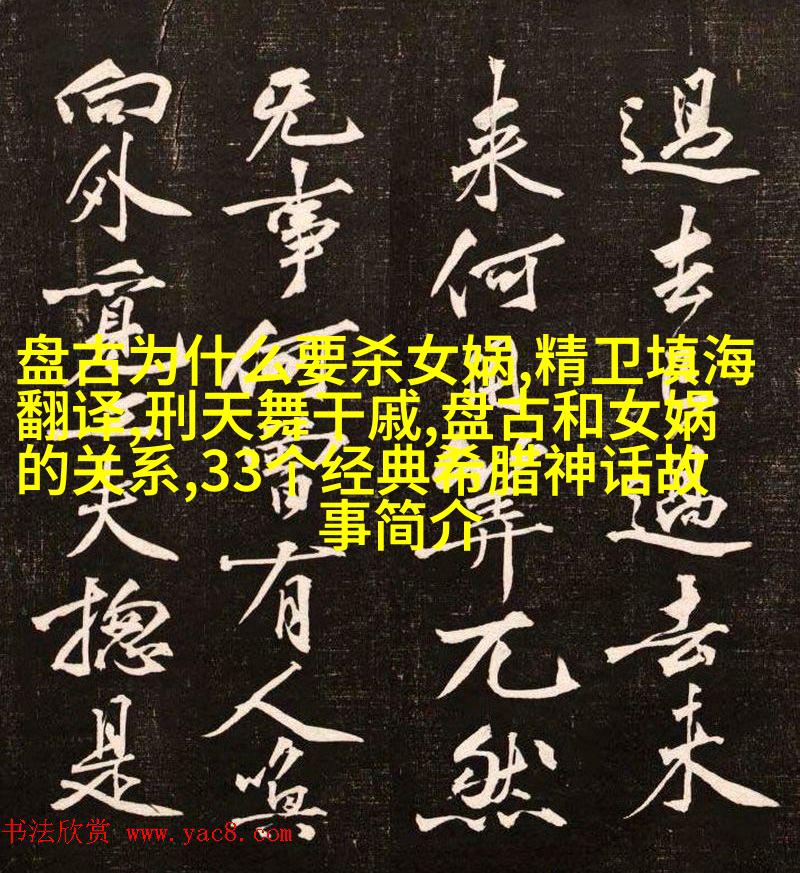 過去已過去未
来何用算兀然
无事何曾有人喚
向外覓工夫揔是
盘古为什么要杀女娲,精卫填海
翻译,刑天舞干戚,盘古和女娲
的关系,33个经典希腊神话故
事简介
书法欣赏 www.yac8.com